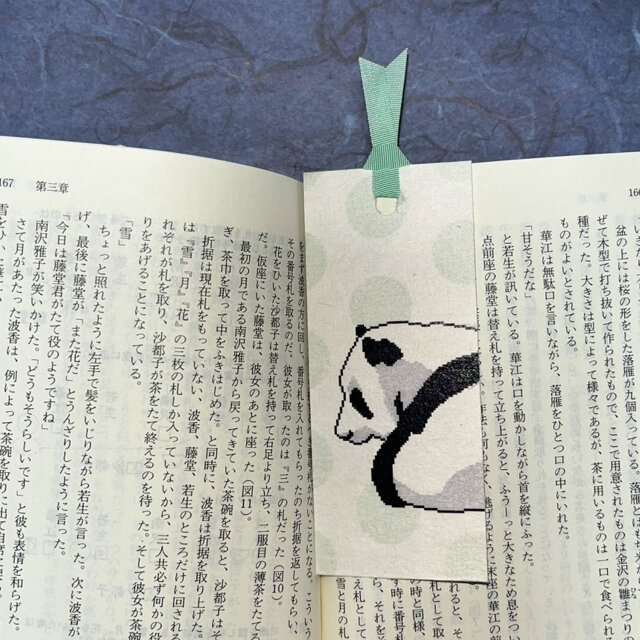 166
盆の上には桜の形をした落雁が九個入って
ぜて木型で打ち抜いて作られたもので、ここで用意されたものは金沢の雛まつり
種だった。大きさは型によって様々であるが、茶に用いるものは一口で食べられ
ものがよいとされている。
華江は無駄口を言いながら、落雁をひとつ口の中にいれた。
「甘そうだな」
と若生が訊いている。華江は口を動かしながら首を縦にふった。
点前座の藤堂は替え札を持って立ち上がると、ふぅーっと大きなため息をつ
167
第三章
をまず波香の方に回し、番号札を入れてもらったのち折据を返してもらい、
その番号札を取るのだ。彼女が取ったのは『三』の札だった(図10)。
花をひいた沙都子は替え札を持って右足より立ち、二服目の薄茶をたて
だ。仮座にいた藤堂は、彼女のあとに座った(図11)。
最初の月である南沢雅子から戻ってきていた茶碗を取ると、沙都子は
ぎ、茶巾を取って中をふきはじめた。と同時に、波香は折据を取り上げた。
折据は現在札をもっていない、波香、藤堂、若生のところだけに回される
は『雪』『月』『花』の三枚の札しか入っていないから、三人共必ず何かの役
それぞれが札を取り、沙都子が茶をたて終えるのを待った。そして彼女が茶
りをあげることになっている。
「雪」
ちょっと照れたように左手で髪をいじりながら若生が言った。次に波香が
げ、最後に藤堂が「また花だ」とうんざりしたように言った。
「今日は藤堂君がたて役のようですね
南沢雅子が笑いかけた。「どうもそうらしいです」と彼も表情を和らげた。
さて月があたった波香は、例によって茶碗を取りに出て自席に